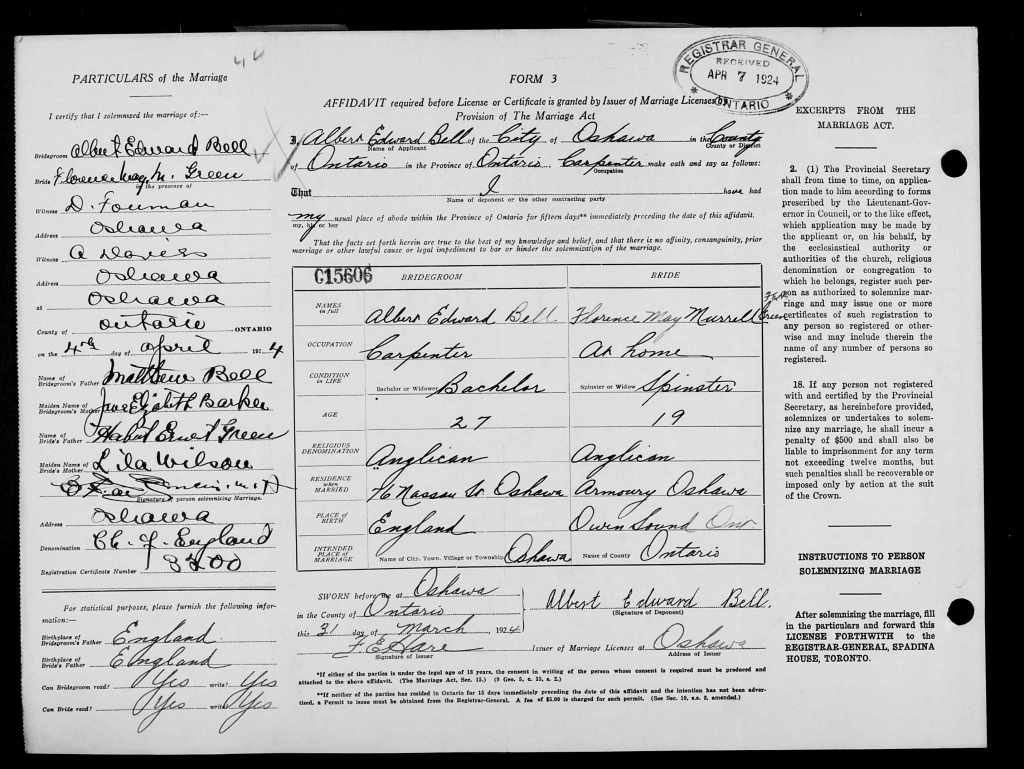 44
PARTICULARS of the Marriage
I certify that I solemnized the marriage of:—
Bridegroom Albert Edward Bell
Bride Florence May M. Green
in the presence of
Witness D. Forman
Address Oshawa
Witness A Davies
Address Oshawa
at Oshawa
County of Ontario ONTARIO
on the 4th day of April 1924
Name of Bridegroom's Father Matthew Bell
Maiden Name of Bridegroom's Mother Jane Elizabeth Barker
Name of Bride's Father Ernest Green
Maiden Name of Bride's Mother Lila Wilson
Signature of person solemnizing Marriage.
Address Oshawa
Denomination Ch. of England
Registration Certificate Number 3200
For statistical purposes, please furnish the following information:—
Birthplace of Bridegroom's Father England
Birthplace of Bride's Father England
Can Bridegroom read? Yes write? Yes
Can Bride read? Yes write Yes
FORM 3
REGISTRAR GENERAL
RECEIVED
APR 7 1924
ONTARIO
AFFIDAVIT required before License or Certificate is granted by Issuer of Marriage Licenses by
Provision of The Marriage Act
I, Albert Edward Bell of the City of Oshawa in the County
Name of Applicant County or District
of Ontario in the Province of Ontario Carpenter make oath and say as follows:
Occupation
That I have had
Name of deponent or the other contracting party
my usual place of abode within the Province of Ontario for fifteen days** immediately preceding the date of this affidavit.
my, his or her
That the facts set forth herein are true to the best of my knowledge and belief, and that there is no affinity, consanguinity, prior
marriage or other lawful cause or legal impediment to bar or hinder the solemnization of the marriage.
C15606 BRIDEGROOM BRIDE
NAMES in full Albert Edward Bell. Florence May Murrell Green
OCCUPATION Carpenter At home
CONDITION IN LIFE Bachelor or Widower Bachelor Spinster or Widow Spinster
AGE 27 19
RELIGIOUS DENOMINATION Anglican Anglican
RESIDENCE when MARRIED 76 Nassau St Oshawa Armoury Oshawa
PLACE OF BIRTH England Owen Sound Ont
INTENDED PLACE OF MARRIAGE Name of City, Town, Village or Township Oshawa Name of County Ontario
SWORN before me at Oshawa
in the County of Ontario
this 31 day of March 1924
F. E. Hare
Signature of Issuer
Albert Edward Bell.
(Signature of Deponent)
Issuer of Marriage Licenses at Oshawa
Address of Issuer
*If either of the parties is under the legal age of 18 years, the consent in writing of the person whose consent is required must be produced and
attached to the above affidavit. (The Marriage Act, Sec. 15.) (9 Geo. 5, c. 35, s. 2.)
**If neither of the parties has resided in Ontario for 15 days immediately preceding the date of this affidavit and the intention has not been advertized, a Permit to issue must be obtained from the Registrar-General. A fee of $5.00 is charged for such permit. (See Sec. 19, s.s. 5, amended.)
EXCERPTS FROM THE
MARRIAGE ACT.
2. (1) The Provincial Secretary
shall from time to time, on applica-
tion made to him according to forms
prescribed by the Lieutenant-Gov-
ernor in Council, or to the like effect,
which application may be made by
the applicant or, on his behalf, by
the ecclesiastical authority or
authorities of the church, religious
denomination or congregation to
which he belongs, register such per-
son as authorized to solemnize mar-
riage and may issue one or more
certificates of such registration to
any person so registered or other-
wise and may include therein the
name of any number of persons so
registered.
18. If any person not registered
with and certified by the Provincial
Secretary, as hereinbefore provided,
solemnizes or undertakes to solem-
nize any marriage, he shall incur a
penalty of $500 and shall also be
liable to imprisonment for any term
not exceeding twelve months, but
such penalties shall be recoverable or
imposed only by action at the suit
of the Crown.
INSTRUCTIONS TO PERSON
SOLEMNIZING MARRIAGE
After solemnizing the marriage, fill
in the particulars and forward this
LICENSE FORTHWITH to the
REGISTRAR-GENERAL, SPADINA
HOUSE, TORONTO.